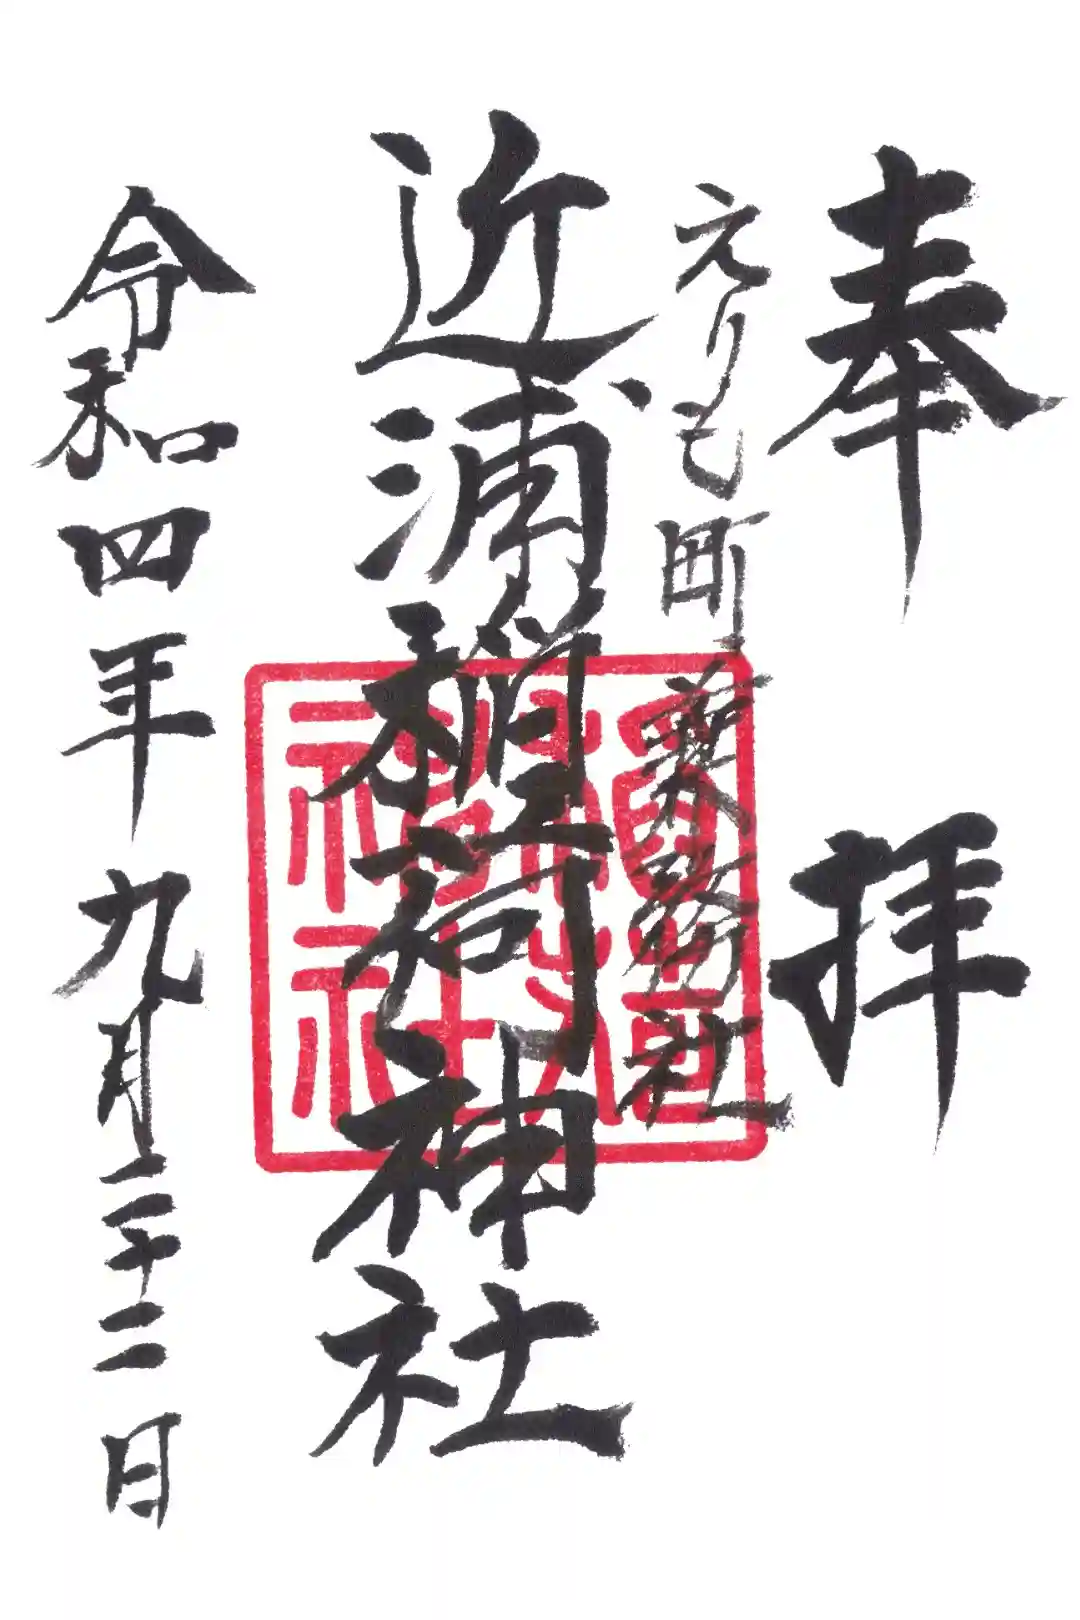 奉拝
えりも町兼務社
近浦稲荷神社
令和四年九月二十二日